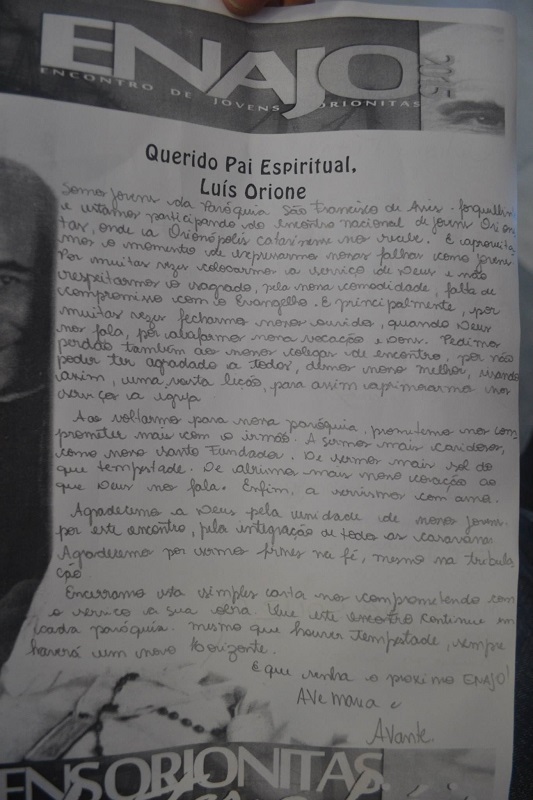 ENAJO 2015
ENCONTRO DE JOVENS ORIONITAS
Querido Pai Espiritual,
Luís Orione
Somos jovens da Paróquia São Francisco de Assis - forquilhi
e estamos participando do encontro nacional de jovens Orioni
tas, onde a Orionópolis catarinense nos recebe. E aproveita
mos o momento de expressarmos nossas falhas como jovens
Por muitas vezes colocarmos a serviço de Deus e não
respeitarmos o sagrado, pela nossa comodidade, falta de
compromisso com o Evangelho. E principalmente, por
muitas vezes fecharmos nossos ouvidos, quando Deus
nos fala, por abafarmos nossa vocação e Dons. Pedimos
perdão também aos nossos colegas de encontro, por não
poder ter agradado a todos, demos nosso melhor, usando
assim, uma vasta lição, para assim aprimorarmos nos
serviços a igreja
Aos voltarmos para nossa paróquia, prometemos nos com
prometer mais com o irmão. A sermos mais caridosos,
como nosso santo Fundador. De sermos mais sol do
que tempestade. De abrirmos mais nosso coração ao
que Deus nos fala. Enfim, a servirmos com amor.
Agradecemos a Deus pela unidade de nossos jovens,
por este encontro, pela integração de todas as caravanas
Agradecemos por sermos firmes na fé, mesmo na tribula
ção
Encerramos esta simples carta nos comprometendo com
o serviço a sua obra. Que este encontro continue em
cada paróquia. mesmo que houver tempestade, sempre
haverá um novo Horizonte.
E que venha o proximo ENAJO!
AVe Maria e
AVante.
ENS ORIONITAS